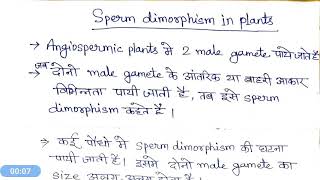 Sperm dimorphism in plants
→ Angiospermic plants मे 2 male gamete पाये जाते है
जब
→ दोनो male gamete के आंतरिक या बाहरी आकार
विभिन्नता पायी जाती है, तब इसे sperm
dimorphism कहते है ।
→ कई पौधो मे sperm dimorphism की घटना
पायी जाती है। इसमे दोनो male gamete का
size अलग-अलग होता है ।
00:07